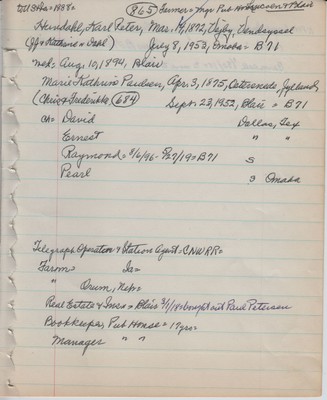 to USA = 1884 = (865) Farmer = Mgr Pub House = Blair
Hendahl, Karl Peter, Mar. 14, 1872, Vejby, Vendsyssel
July 8, 1953, Omaha = B71
wed = Aug, 10, 1894, Blair
Marie Kathrine Paulsen, Apr, 3, 1875, Jylland,
(Chris & Fredrikke (684) Sept. 23, 1952, Blair = B71
ch = David Dallas, Tex
Ernest " "
Raymond = 8/6/96 - 5/27/19 = B71 S
Pearl S Omaha
Telegraph Operator & Station Agent = CNWRR =
Farm = Ia =
" Orum, Neb =
Real Estate & Ins = Blair 3/1/18 = bought out Paul Petersen
Bookkeeper, Pub House = 17 yrs =
Manager " " =